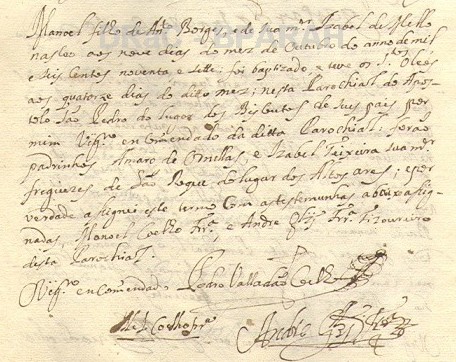 Manoel filho de Anº Borges, e de sua mer Izabel de Mello
nasceo aos nove dias do mez de Outubro do anno de mil
e seis centos noventa e sette; foi baptizado, e teve os stos Oleos
aos quatorze dias do dito mez; nesta Parochial do Apos-
tolo São Pedro do lugar dos Biscutos de seus pais por
mim Vigrº encomendado da ditta Parochial: forão
padrinhos Amaro de Ornellas, e Izabel Teixeira sua mer
freguezes de São Roque do lugar dos Altos ares; e por
verdade asignei este termo com as testemunhas abaixo asig-
nadas, Manoel Coelho Frª, e Andre Frª tizoureiro
desta Parochial.
O Vigrº encomendado Pedro Valladão Coelho
Mel Coelho frª Andre